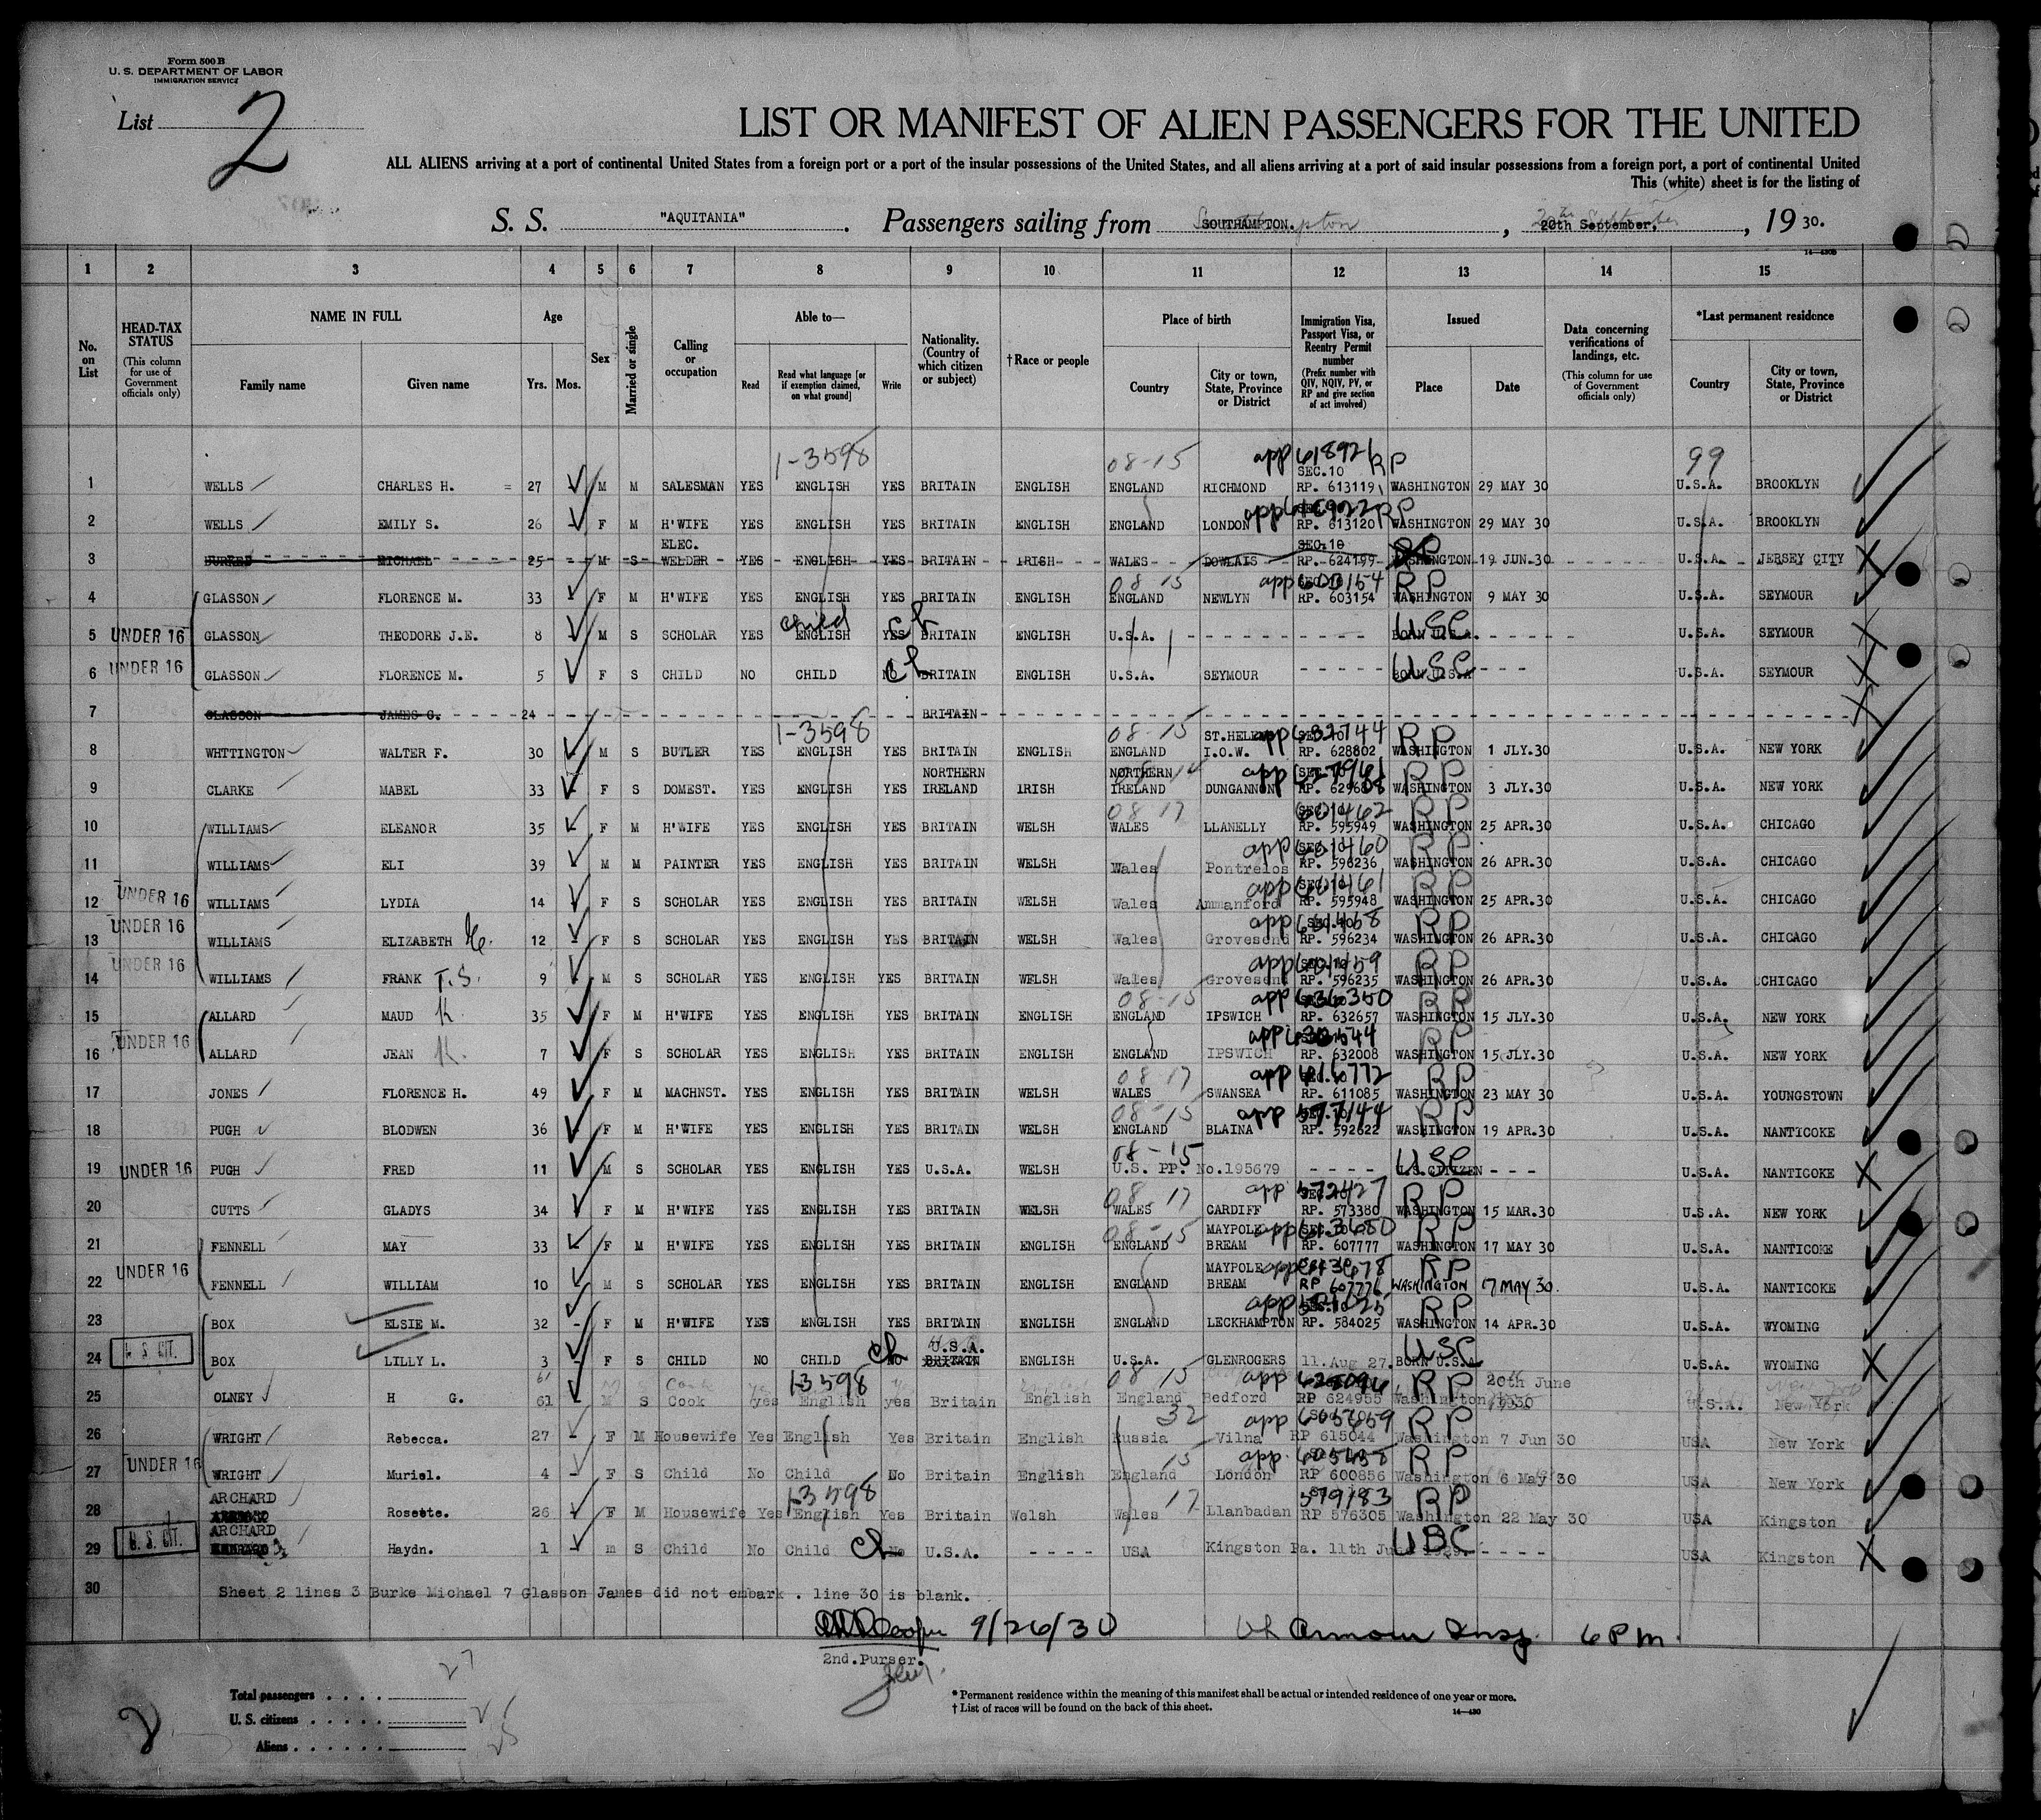 Form 500 B
U. S. DEPARTMENT OF LABOR
IMMIGRATION SERVICE
List 2
LIST OR MANIFEST OF ALIEN PASSENGERS FOR THE UNITED
ALL ALIENS arriving at a port of continental United States from a foreign port or a port of the insular possessions of the United States, and all aliens arriving at a port of said insular possessions from a foreign port, a port of continental United
This (white) sheet is for the listing of
S. S. "AQUITANIA". Passengers sailing from SOUTHAMPTON. , 20th September, , 19 30.
14—430B
1 2 3 4 5 6 7 8 9 10 11 12 13 14 15
No. on List
HEAD-TAX STATUS (This column for use of Government officials only)
NAME IN FULL Family name Given name
Age Yrs. Mos.
Sex
Married or single
Calling or occupation
Able to— Read Read what language [or if exemption claimed, on what ground] Write
Nationality. (Country of which citizen or subject)
†Race or people
Place of birth Country City or town, State, Province or District
Immigration Visa, Passport Visa, or Reentry Permit number (Prefix number with QIV, NQIV, PV, or RP and give section of act involved)
Issued Place Date
Data concerning verifications of landings, etc. (This column for use of Government officials only)
*Last permanent residence Country City or town, State, Province or District
1-3598 08-15 app 618921 RP 99
SEC.10
1 WELLS CHARLES H. = 27 M M SALESMAN YES ENGLISH YES BRITAIN ENGLISH ENGLAND RICHMOND RP. 613119 WASHINGTON 29 MAY 30 U.S.A. BROOKLYN
2 WELLS EMILY S. 26 F M H'WIFE YES ENGLISH YES BRITAIN ENGLISH ENGLAND LONDON RP. 613120 RP WASHINGTON 29 MAY 30 U.S.A. BROOKLYN
ELEC. SEC.10
3 BURKE MICHAEL 25 M S WELDER YES ENGLISH YES BRITAIN IRISH WALES DOWLAIS RP. 624199 WASHINGTON 19 JUN.30 U.S.A. JERSEY CITY
08 15 RP
4 GLASSON FLORENCE M. 33 F M H'WIFE YES ENGLISH YES BRITAIN ENGLISH ENGLAND NEWLYN RP. 603154 WASHINGTON 9 MAY 30 U.S.A. SEYMOUR
child ch USC
5 UNDER 16 GLASSON THEODORE J.E. 8 M S SCHOLAR YES ENGLISH YES BRITAIN ENGLISH U.S.A. BORN U.S.A. U.S.A. SEYMOUR
ch USC
6 UNDER 16 GLASSON FLORENCE M. 5 F S CHILD NO CHILD NO BRITAIN ENGLISH U.S.A. SEYMOUR BORN U.S.A U.S.A. SEYMOUR
7 GLASSON JAMES G. 24 BRITAIN
1-3598 08-15 ST.HELENS app 632744 RP
8 WHTTINGTON WALTER F. 30 M S BUTLER YES ENGLISH YES BRITAIN ENGLISH ENGLAND I.O.W. RP. 628802 WASHINGTON 1 JLY.30 U.S.A. NEW YORK
NORTHERN NORTHERN app RP
9 CLARKE MABEL 33 F S DOMEST. YES ENGLISH YES IRELAND IRISH IRELAND DUNGANNON WASHINGTON 3 JLY.30 U.S.A. NEW YORK
08 17 601462 RP
10 WILLIAMS ELEANOR 35 F M H'WIFE YES ENGLISH YES BRITAIN WELSH WALES LLANELLY RP. 595949 WASHINGTON 25 APR.30 U.S.A. CHICAGO
app 601460 RP
11 WILLIAMS ELI 39 M M PAINTER YES ENGLISH YES BRITAIN WELSH Wales Pontrelos RP. 596236 WASHINGTON 26 APR.30 U.S.A. CHICAGO
app 601461 RP
12 UNDER 16 WILLIAMS LYDIA 14 F S SCHOLAR YES ENGLISH YES BRITAIN WELSH Wales Ammanford RP. 595948 WASHINGTON 25 APR.30 U.S.A. CHICAGO
app RP
13 UNDER 16 WILLIAMS ELIZABETH 12 F S SCHOLAR YES ENGLISH YES BRITAIN WELSH Wales Grovesend RP. 596234 WASHINGTON 26 APR.30 U.S.A. CHICAGO
app 601459 RP
14 UNDER 16 WILLIAMS FRANK T.S. 9 M S SCHOLAR YES ENGLISH YES BRITAIN WELSH Wales Grovesend RP. 596235 WASHINGTON 26 APR.30 U.S.A. CHICAGO
08-15 app 636350 RP
15 ALLARD MAUD K. 35 F M H'WIFE YES ENGLISH YES BRITAIN ENGLISH ENGLAND IPSWICH RP. 632657 WASHINGTON 15 JLY.30 U.S.A. NEW YORK
app RP
16 UNDER 16 ALLARD JEAN K. 7 F S SCHOLAR YES ENGLISH YES BRITAIN ENGLISH ENGLAND IPSWICH RP. 632008 WASHINGTON 15 JLY.30 U.S.A. NEW YORK
08 17 app 616772 RP
17 JONES FLORENCE H. 49 F M MACHNST. YES ENGLISH YES BRITAIN WELSH WALES SWANSEA RP. 611085 WASHINGTON 23 MAY 30 U.S.A. YOUNGSTOWN
08-15 app 577144 RP
18 PUGH BLODWEN 36 F M H'WIFE YES ENGLISH YES BRITAIN WELSH ENGLAND BLAINA RP. 592622 WASHINGTON 19 APR.30 U.S.A. NANTICOKE
08-15 USC
19 UNDER 16 PUGH FRED 11 M S SCHOLAR YES ENGLISH YES U.S.A. WELSH U.S. PP. No.195679 U.S. CITIZEN U.S.A. NANTICOKE
08 17 app 572427 RP
20 CUTTS GLADYS 34 F M H'WIFE YES ENGLISH YES BRITAIN WELSH WALES CARDIFF RP. 573380 WASHINGTON 15 MAR.30 U.S.A. NEW YORK
08-15 MAYPOLE app 613680 RP
21 FENNELL MAY 33 F M H'WIFE YES ENGLISH YES BRITAIN ENGLISH ENGLAND BREAM RP. 607777 WASHINGTON 17 MAY 30 U.S.A. NANTICOKE
MAYPOLE app 613678 RP
22 UNDER 16 FENNELL WILLIAM 10 M S SCHOLAR YES ENGLISH YES BRITAIN ENGLISH ENGLAND BREAM RP 607776 WASHINGTON 17 MAY 30. U.S.A. NANTICOKE
app RP
23 BOX ELSIE M. 32 F M H'WIFE YES ENGLISH YES BRITAIN ENGLISH ENGLAND LECKHAMPTON RP. 584025 WASHINGTON 14 APR.30 U.S.A. WYOMING
ch U.S.A. USC
24 U. S. CIT. BOX LILLY L. 3 F S CHILD NO CHILD NO BRITAIN ENGLISH U.S.A. GLENROGERS 11.Aug 27. BORN U.S.A. U.S.A. WYOMING
61 Cook 1-3598 08 15 app RP 20th June
25 OLNEY H G. 61 M S Cook yes English yes Britain English England Bedford RP 624955 Washington 1930 U.S.A. New York
32 app RP
26 WRIGHT Rebecca. 27 F M Housewife Yes English Yes Britain English Russia Vilna RP 615044 Washington 7 Jun 30 USA New York
15 app. RP
27 UNDER 16 WRIGHT Muriel. 4 F S Child No Child No Britain English England London RP 600856 Washington 6 May 30 USA New York
ARCHARD 1-3598 17 579183 RP
28 Rosette. 26 F M Housewife Yes English Yes Britain Welsh Wales Llanbadan RP 576305 Washington 22 May 30 USA Kingston
ARCHARD ch USC
29 U. S. CIT. Haydn. 1 m S Child No Child No U.S.A. USA Kingston Pa. 11th June 1929. USA Kingston
30 Sheet 2 lines 3 Burke Michael 7 Glasson James did not embark . line 30 is blank.
9/26/30 Armour Insp. 6 P m.
2nd.Purser.
Total passengers . . . . 27
U. S. citizens . . . . .
Aliens . . . . . . 25
2
* Permanent residence within the meaning of this manifest shall be actual or intended residence of one year or more.
† List of races will be found on the back of this sheet.
14—430